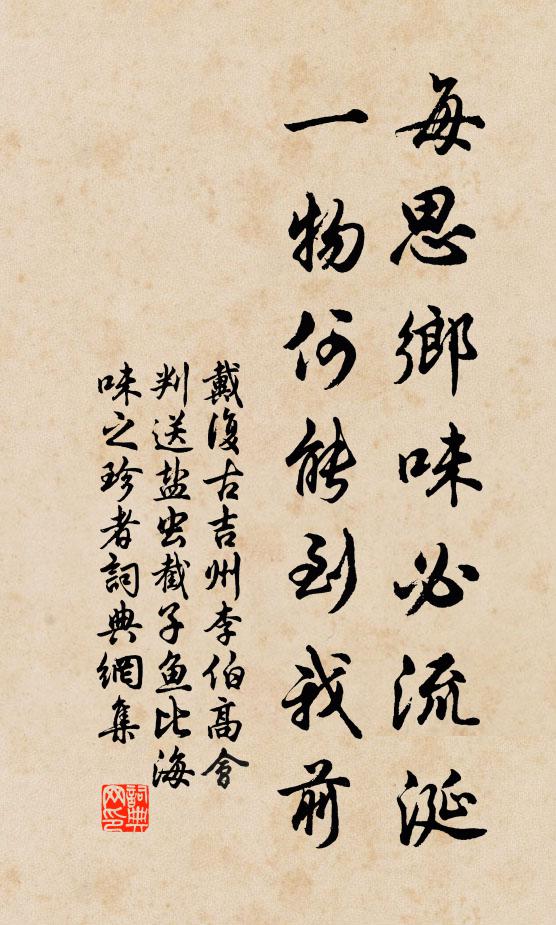 每思鄉味必流涎
一物何能到我前
戴復古吉州李伯高會
判送盐虫截子鱼比海
味之珍者詞典網集
詞典网印